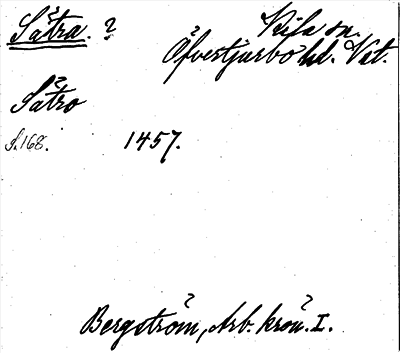 Sätra. ? Kila sn.
Öfvestjurbo hd. Vat.
Sätro
S. 168. 1457.
Bergström, Arb. krön. I.